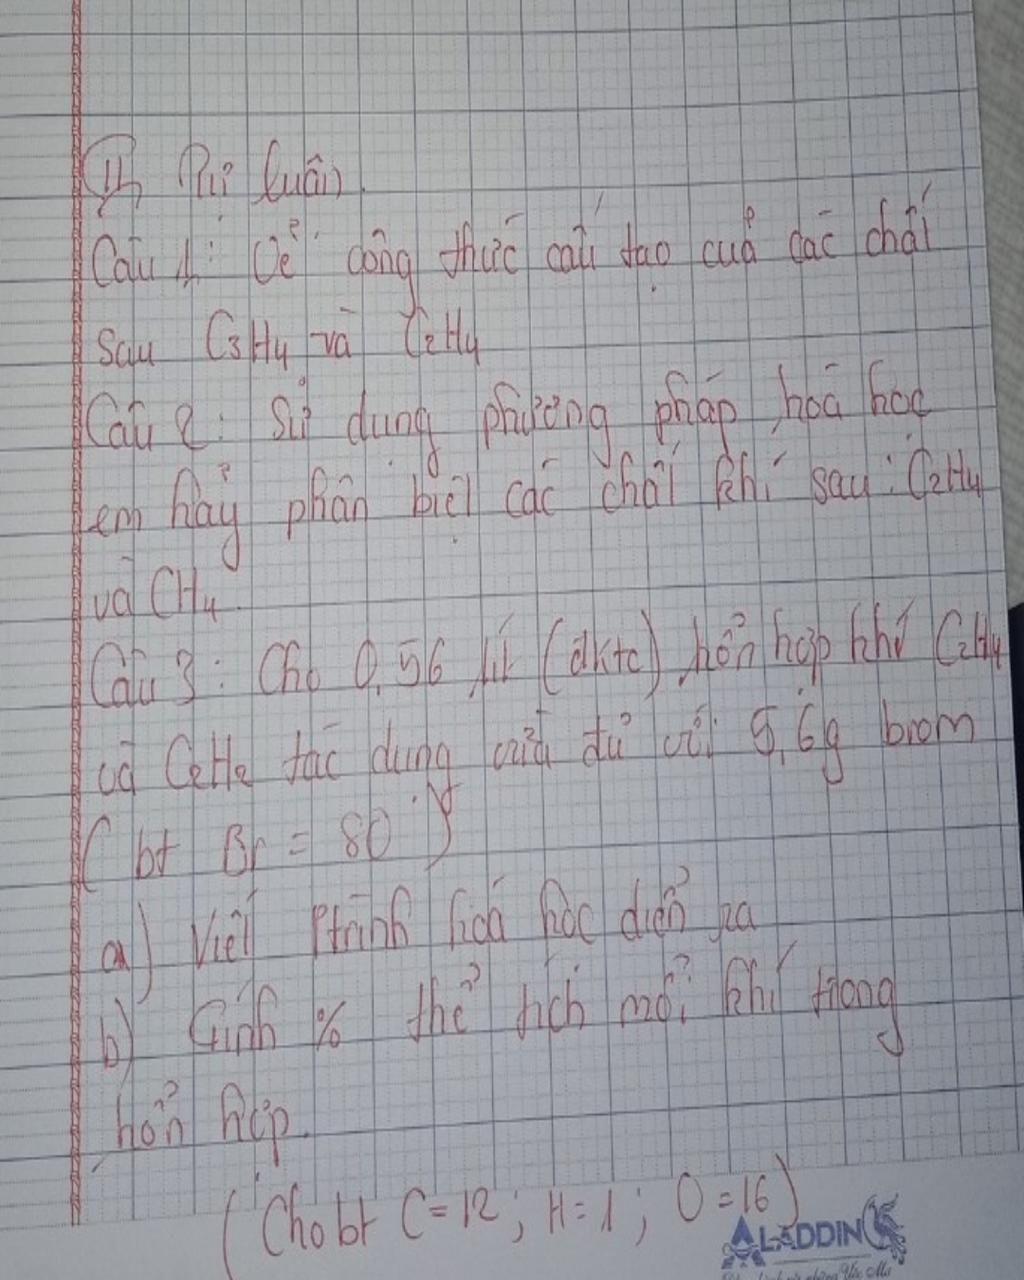 II, Tự luận.
Câu 1: Vẽ công thức cấu tạo của các chất
sau C3H4 và C2H4
Câu 2: Sử dụng phương pháp hoá học
em hảy phân biệt các chất khí sau: C2H4
và CH4.
Câu 3: Cho 0,56 lít (đktc) hổn hợp khí C2H4
và C2H2 tác dụng vừa đủ với 5,6g brom
( bt Br = 80 )
a) Viết ptrình hoá học diển ra
b) Tính % thể tích mổi khí trong
hổn hợp.
( Cho bt C=12 ; H=1 ; O=16)
ALADDIN